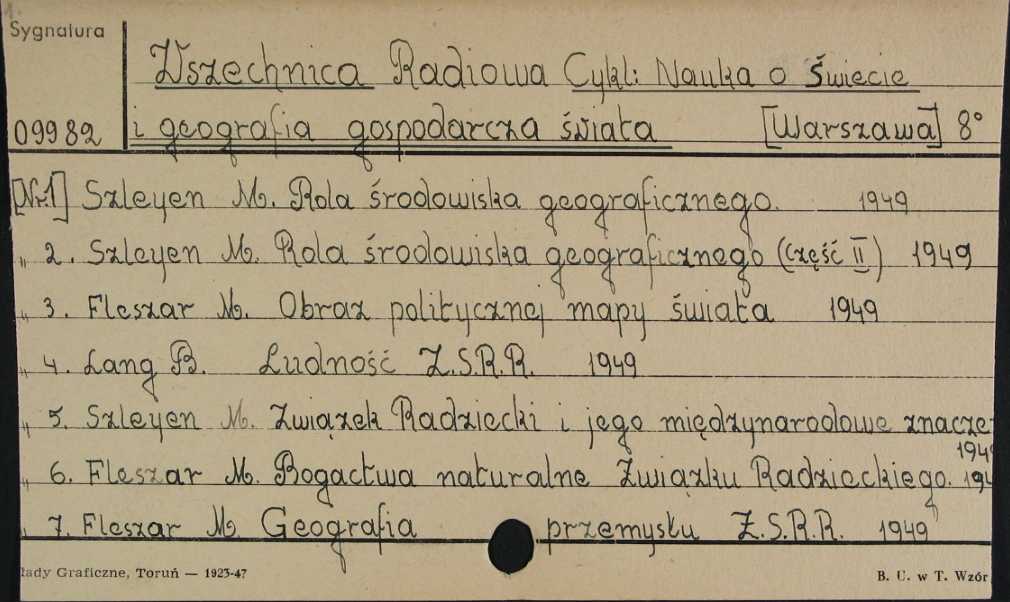 Sygnatura
Wszechnica Radiowa Cykl: Nauka o Świecie
09982 i geografia gospodarcza świata [Warszawa] 8°
[Nr.1] Szleyen M. Rola środowiska geograficznego. 1949
„ 2. Szleyen M. Rola środowiska geograficznego (część II) 1949
„ 3. Fleszar M. Obraz politycznej mapy świata 1949
„ 4. Lang B. Ludność Z.S.R.R. 1949
„ 5. Szleyen M. Związek Radziecki i jego międzynarodowe znacze-
1949
„ 6. Fleszar M. Bogactwa naturalne Związku Radzieckiego. 194
„ 7. Fleszar M. Geografia przemysłu Z.S.R.R. 1949
łady Graficzne, Toruń — 1923-47 B. U. w T. Wzór